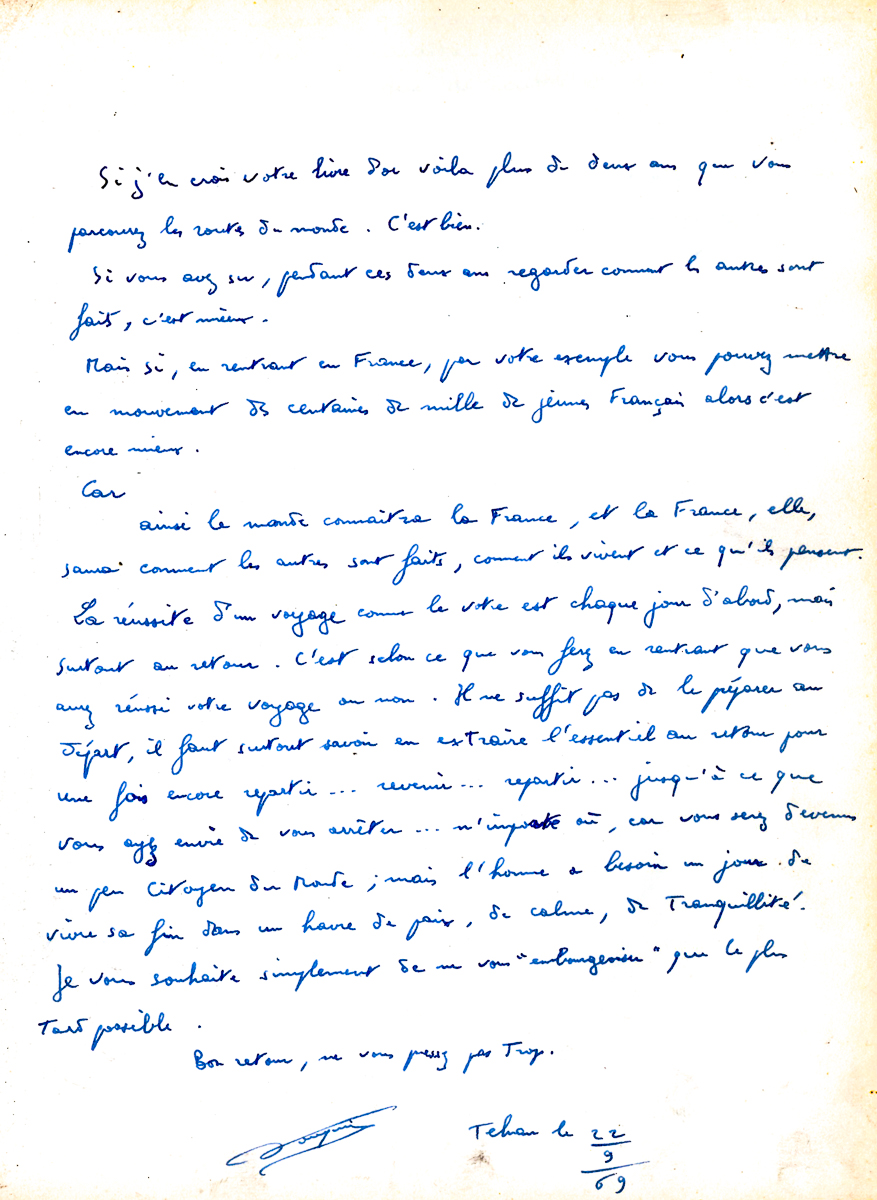 Si j'en crois votre livre d'or voilà plus de deux ans que vous
parcourez les routes du monde. C'est bien.
Si vous avez su, pendant ces deux ans regarder comment les autres sont
faits, c'est mieux.
Mais si, en rentrant en France, par votre exemple vous pouvez mettre
en mouvement des centaines de mille de jeunes Français alors c'est
encore mieux.
Car
ainsi le monde connaitra la France, et la France, elle,
saura comment les autres sont faits, comment ils vivent et ce qu'ils pensent.
La réussite d'un voyage comme le votre est chaque jour d'abord, mais
surtout au retour. C'est selon ce que vous ferez en rentrant que vous
aurez réussi votre voyage ou non. Il ne suffit pas de le préparer au
départ, il faut surtout savoir en extraire l'essentiel au retour pour
une fois encore repartir... revenir... repartir... jusqu'à ce que
vous ayez envie de vous arrêter... n'importe où, car vous serez devenus
un peu Citoyen du Monde ; mais l'homme a besoin un jour de
vivre sa fin dans un havre de paix, de calme, de Tranquillité.
Je vous souhaite simplement de ne vous "embourgeoiser" que le plus
Tard possible.
Bon retour, ne vous pressez pas Trop.
Tehran le 22
9
69